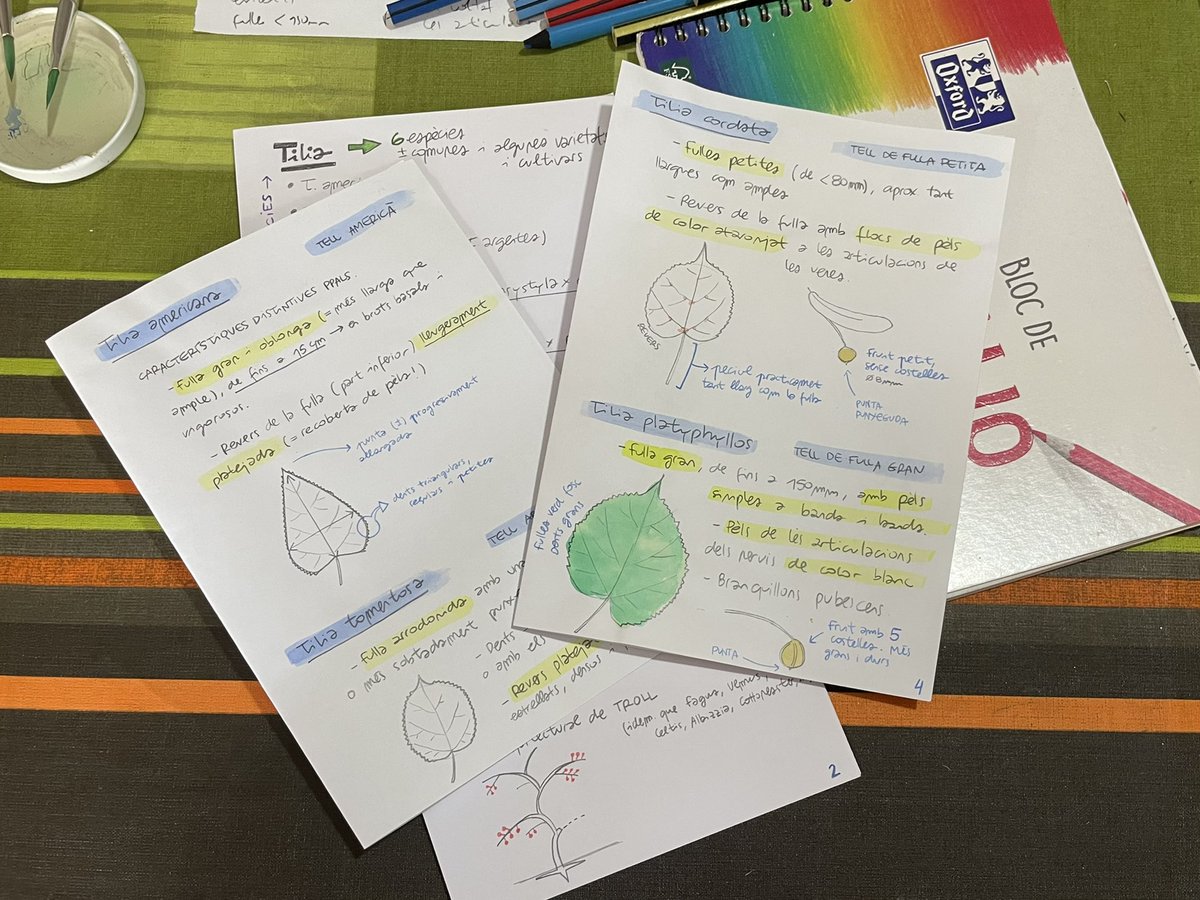 fulles < 150mm
les articula
Tilia → 6 espècies
± comunes i algunes varietats
i cultivars
• T. ameri
CIES →
argentea)
x
TELL AMERICÀ
Tilia americana
CARACTERÍSTIQUES DISTINTIVES PPALS.
- Fulla gran i oblonga (= més llarga que
ample), de fins a 15 cm → en brots basals i
vigorosos.
- Revers de la fulla (part inferior) lleugerament
platejada (= recoberta de pèls!)
Punta (±) progressivament
allargada
dents triangulars,
regulars i petites
Tilia tomentosa
TELL
- Fulla arrodonida amb una
o més sobtadament
- Dents
o amb els
- Revers plateja
estrellats, densos
Tilia cordata
TELL DE FULLA PETITA
- Fulles petites (de <80mm), aprox tant
llargues com amples
- Revers de la fulla amb flocs de pèls
de color ataronjat a les articulacions de
les venes.
REVERS
peciol pràcticament
tant llarg com la fulla
Fruit petit,
sense costelles
Ø 8mm
PUNTA
PUNXEGUDA
Tilia platyphyllos
TELL DE FULLA GRAN
- Fulla gran, de fins a 150mm, amb pèls
simples a banda i banda.
- Pèls de les articulacions
dels nervis de color blanc
- Branquillons pubescens.
Fulles verd fosc
Dents grans
PUNTA
Fruit amb 5
costelles. Més
grans i durs
4
de TROLL
(idem. que Fagus,
Celtis, Albizzia, Cotoneaster,
2
Oxford
BLOC DE